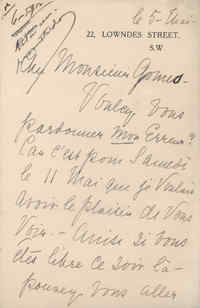 le 5 Mai
22, LOWNDES STREET.
S.W.
Monsieur Gomes
Voulez Vous
pardonner Mon Erreur?
Car c'est pour Samedi
le 11 Mai que je Voulais
avoir le plaisir de Vous
Voir — Ainsi si Vous
êtes libre ce soir là
pouvez Vous aller